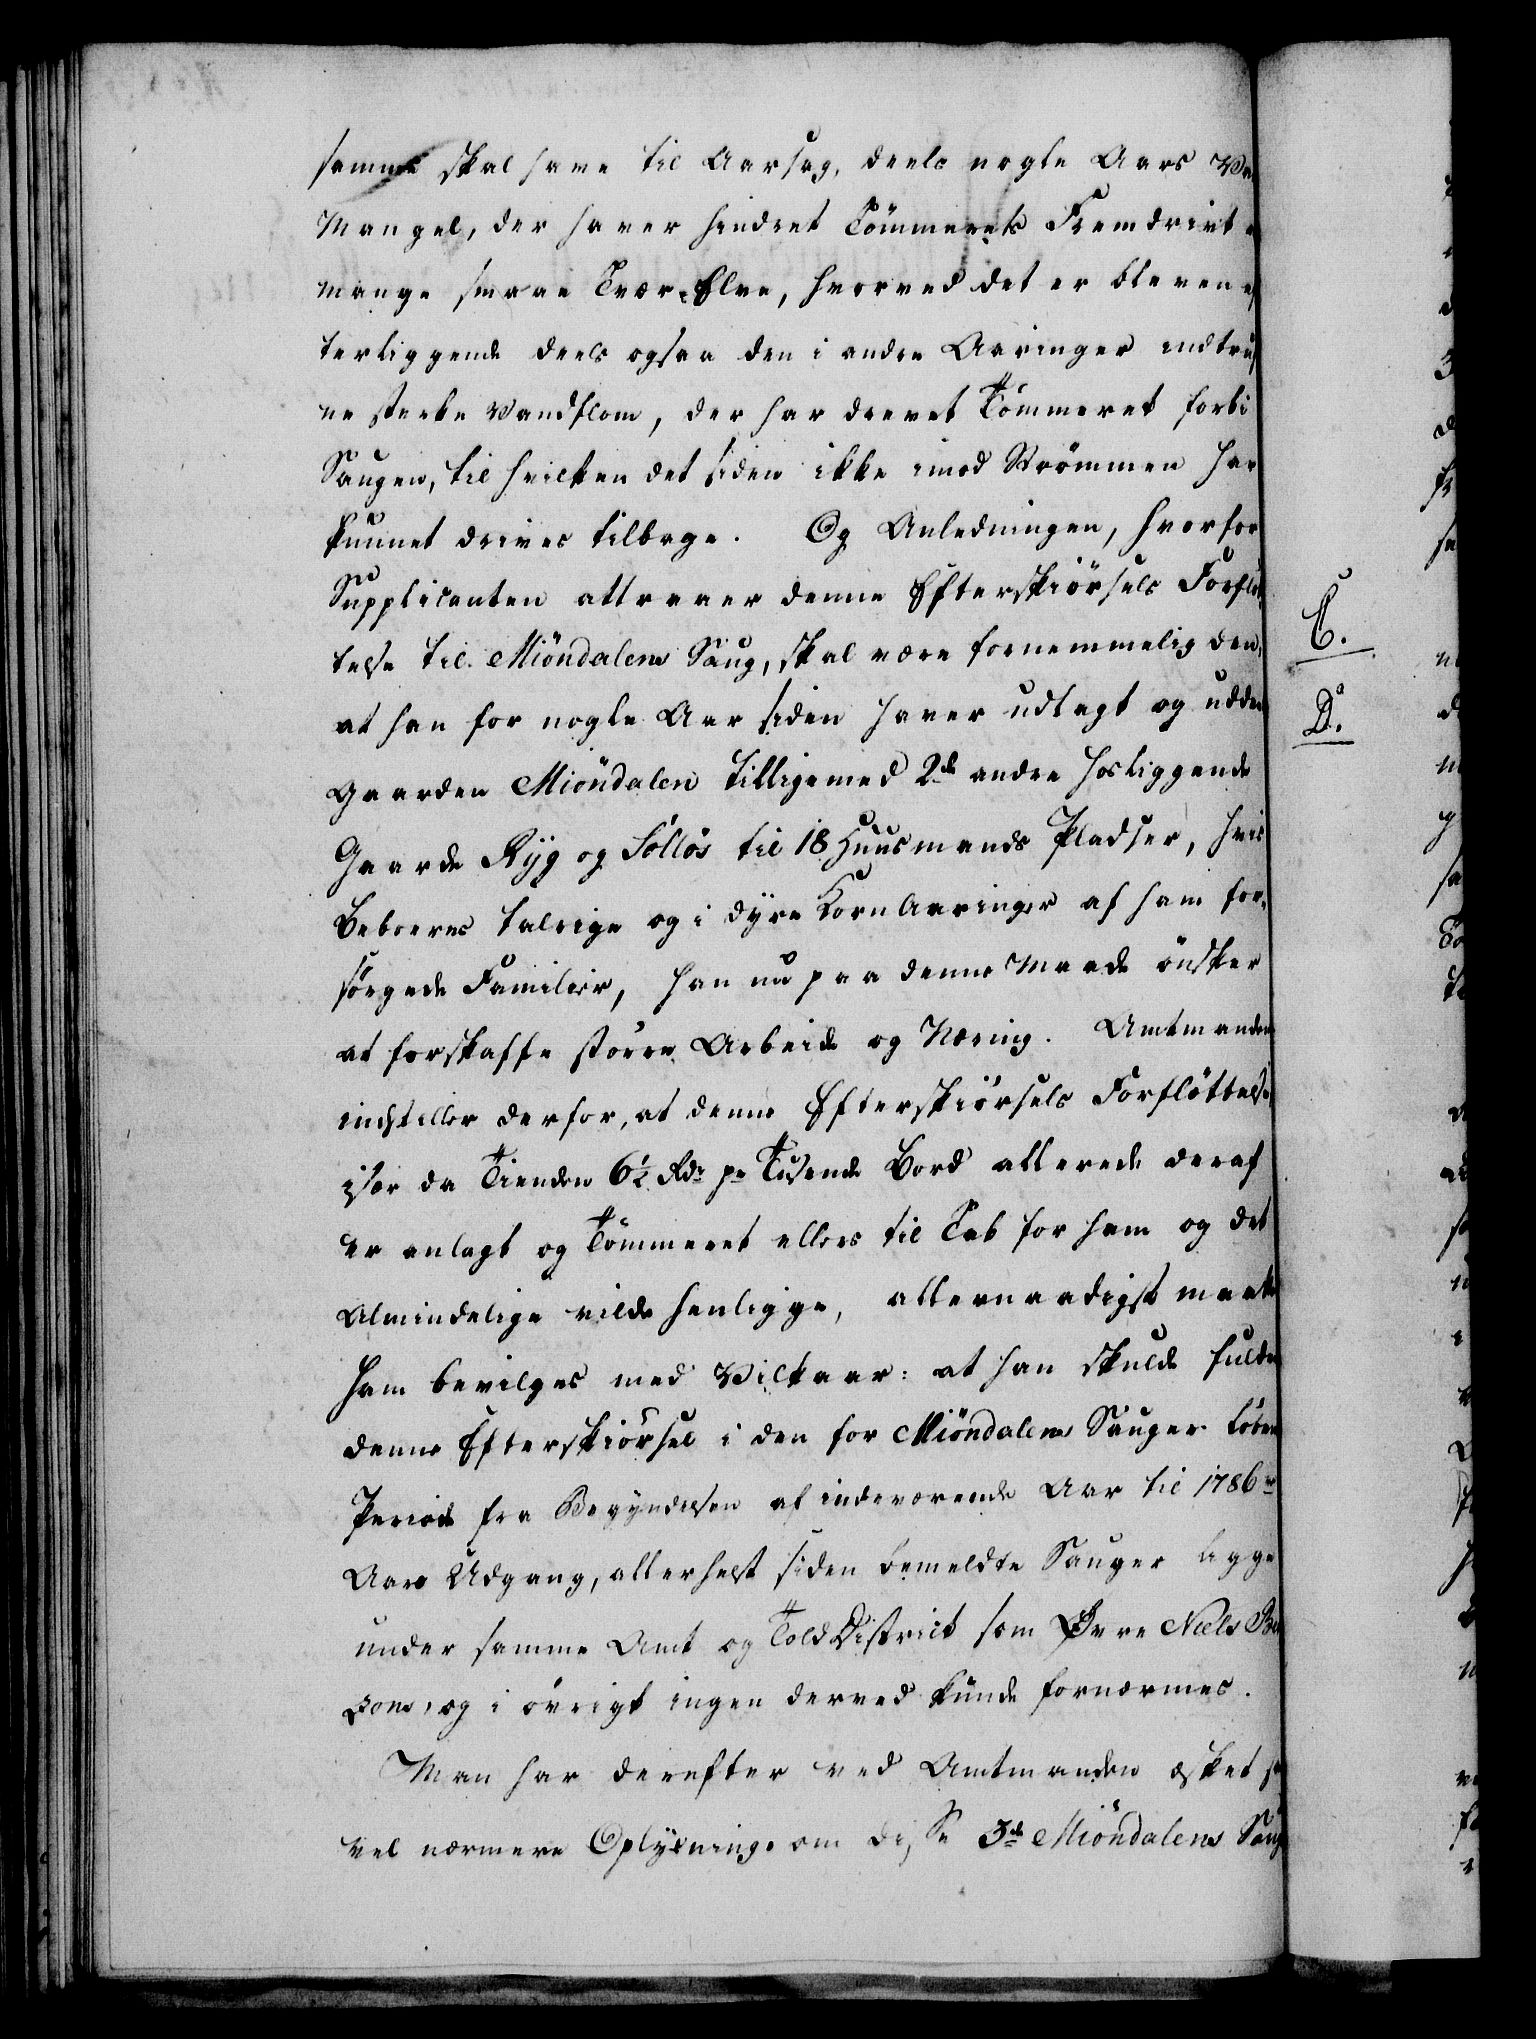 samme skal have til Aarsag, deels nogle Aars
Mangel, der haver hindret Tömmerets Fremdrivt
mange smaae Tvær-Elve, hvorved det er bleven e
terliggende deels ogsaa den i andre Aaringer indtru
ne sterke Vandflom, der har drevet Tömmeret forbi
Saugen, til hvilken det siden ikke imod Strömmen har
kunnet drives tilbage. Og Anledningen, hvorfor
Supplicanten attraaer denne Efterskiörsels Forflöt-
telse til Miöndalens Saug, skal være fornemmelig den,
at han for nogle Aar siden haver udlagt og uddee
Gaarden Miöndalen tilligemed 2de andre hosliggende
Gaarde Ryg og Söllös til 18 Huusmands Pladser, hvis
Beboeres talrige og i dyre Korn Aaringer af ham for-
sörgede Familier, han nu paa denne Maade önsker
at forskaffe större Arbeide og Næring. Amtmanden
indstiller derfor, at denne Efterskiörsels Forflöttelse
især da Tienden 6½ Rdr pr Tusende Bord allerede deraf
er anlagt og Tömmeret ellers til Tab for ham og det
Almindelige vilde henligge, allernaadigst maatte
ham bevilges med Vilkaar: at han skulde fulde
denne Efterskiörsel i den for Miöndalens Sauger löben
Periode fra Begyndelsen af indeværende Aar til 1786de
Aars Udgang, allerhelst siden bemeldte Sauger ligge
under samme Amt og Told District som Øvre Niels Be
sons, og i övrigt ingen derved kunde fornærmes.
Man har derefter ved Amtmanden æsket s
vel nærmere Oplysning om disse 3de Miöndalens Saug
C.
D.